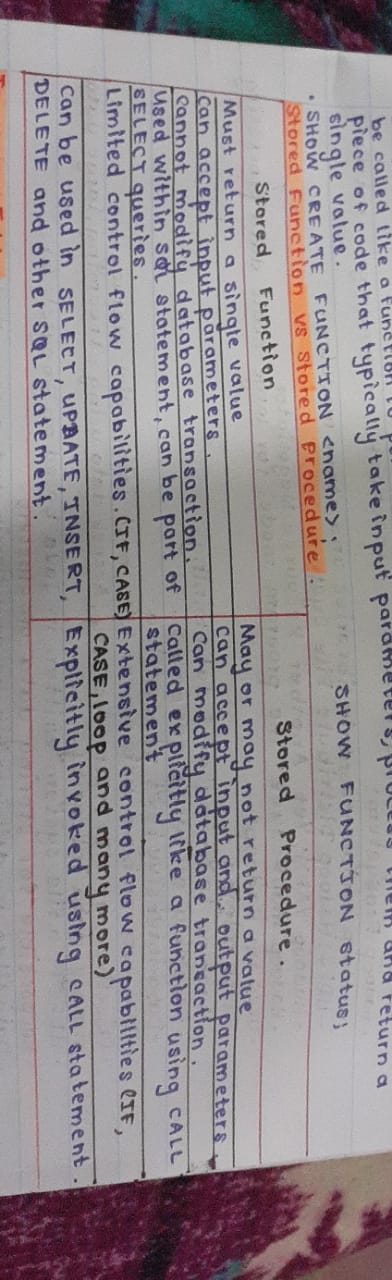 be called like a function to
piece of code that typically take input parameters, process them and return a
single value.
SHOW FUNCTION status;
• SHOW CREATE FUNCTION <name>;
Stored Function VS Stored Procedure :
Stored Function
Stored Procedure.
Must return a single value
May or may not return a value
can accept input parameters.
can accept input and output parameters.
cannot modify database transaction.
Can modify database transaction.
used within SQL statement, can be part of
SELECT queries.
Called explicitly like a function using CALL
statement
Limited control flow capabilities. (IF, CASE)
Extensive control flow capabilities (IF,
CASE, loop and many more)
can be used in SELECT, UPDATE, INSERT,
DELETE and other SQL statement.
Explicitly invoked using CALL statement.